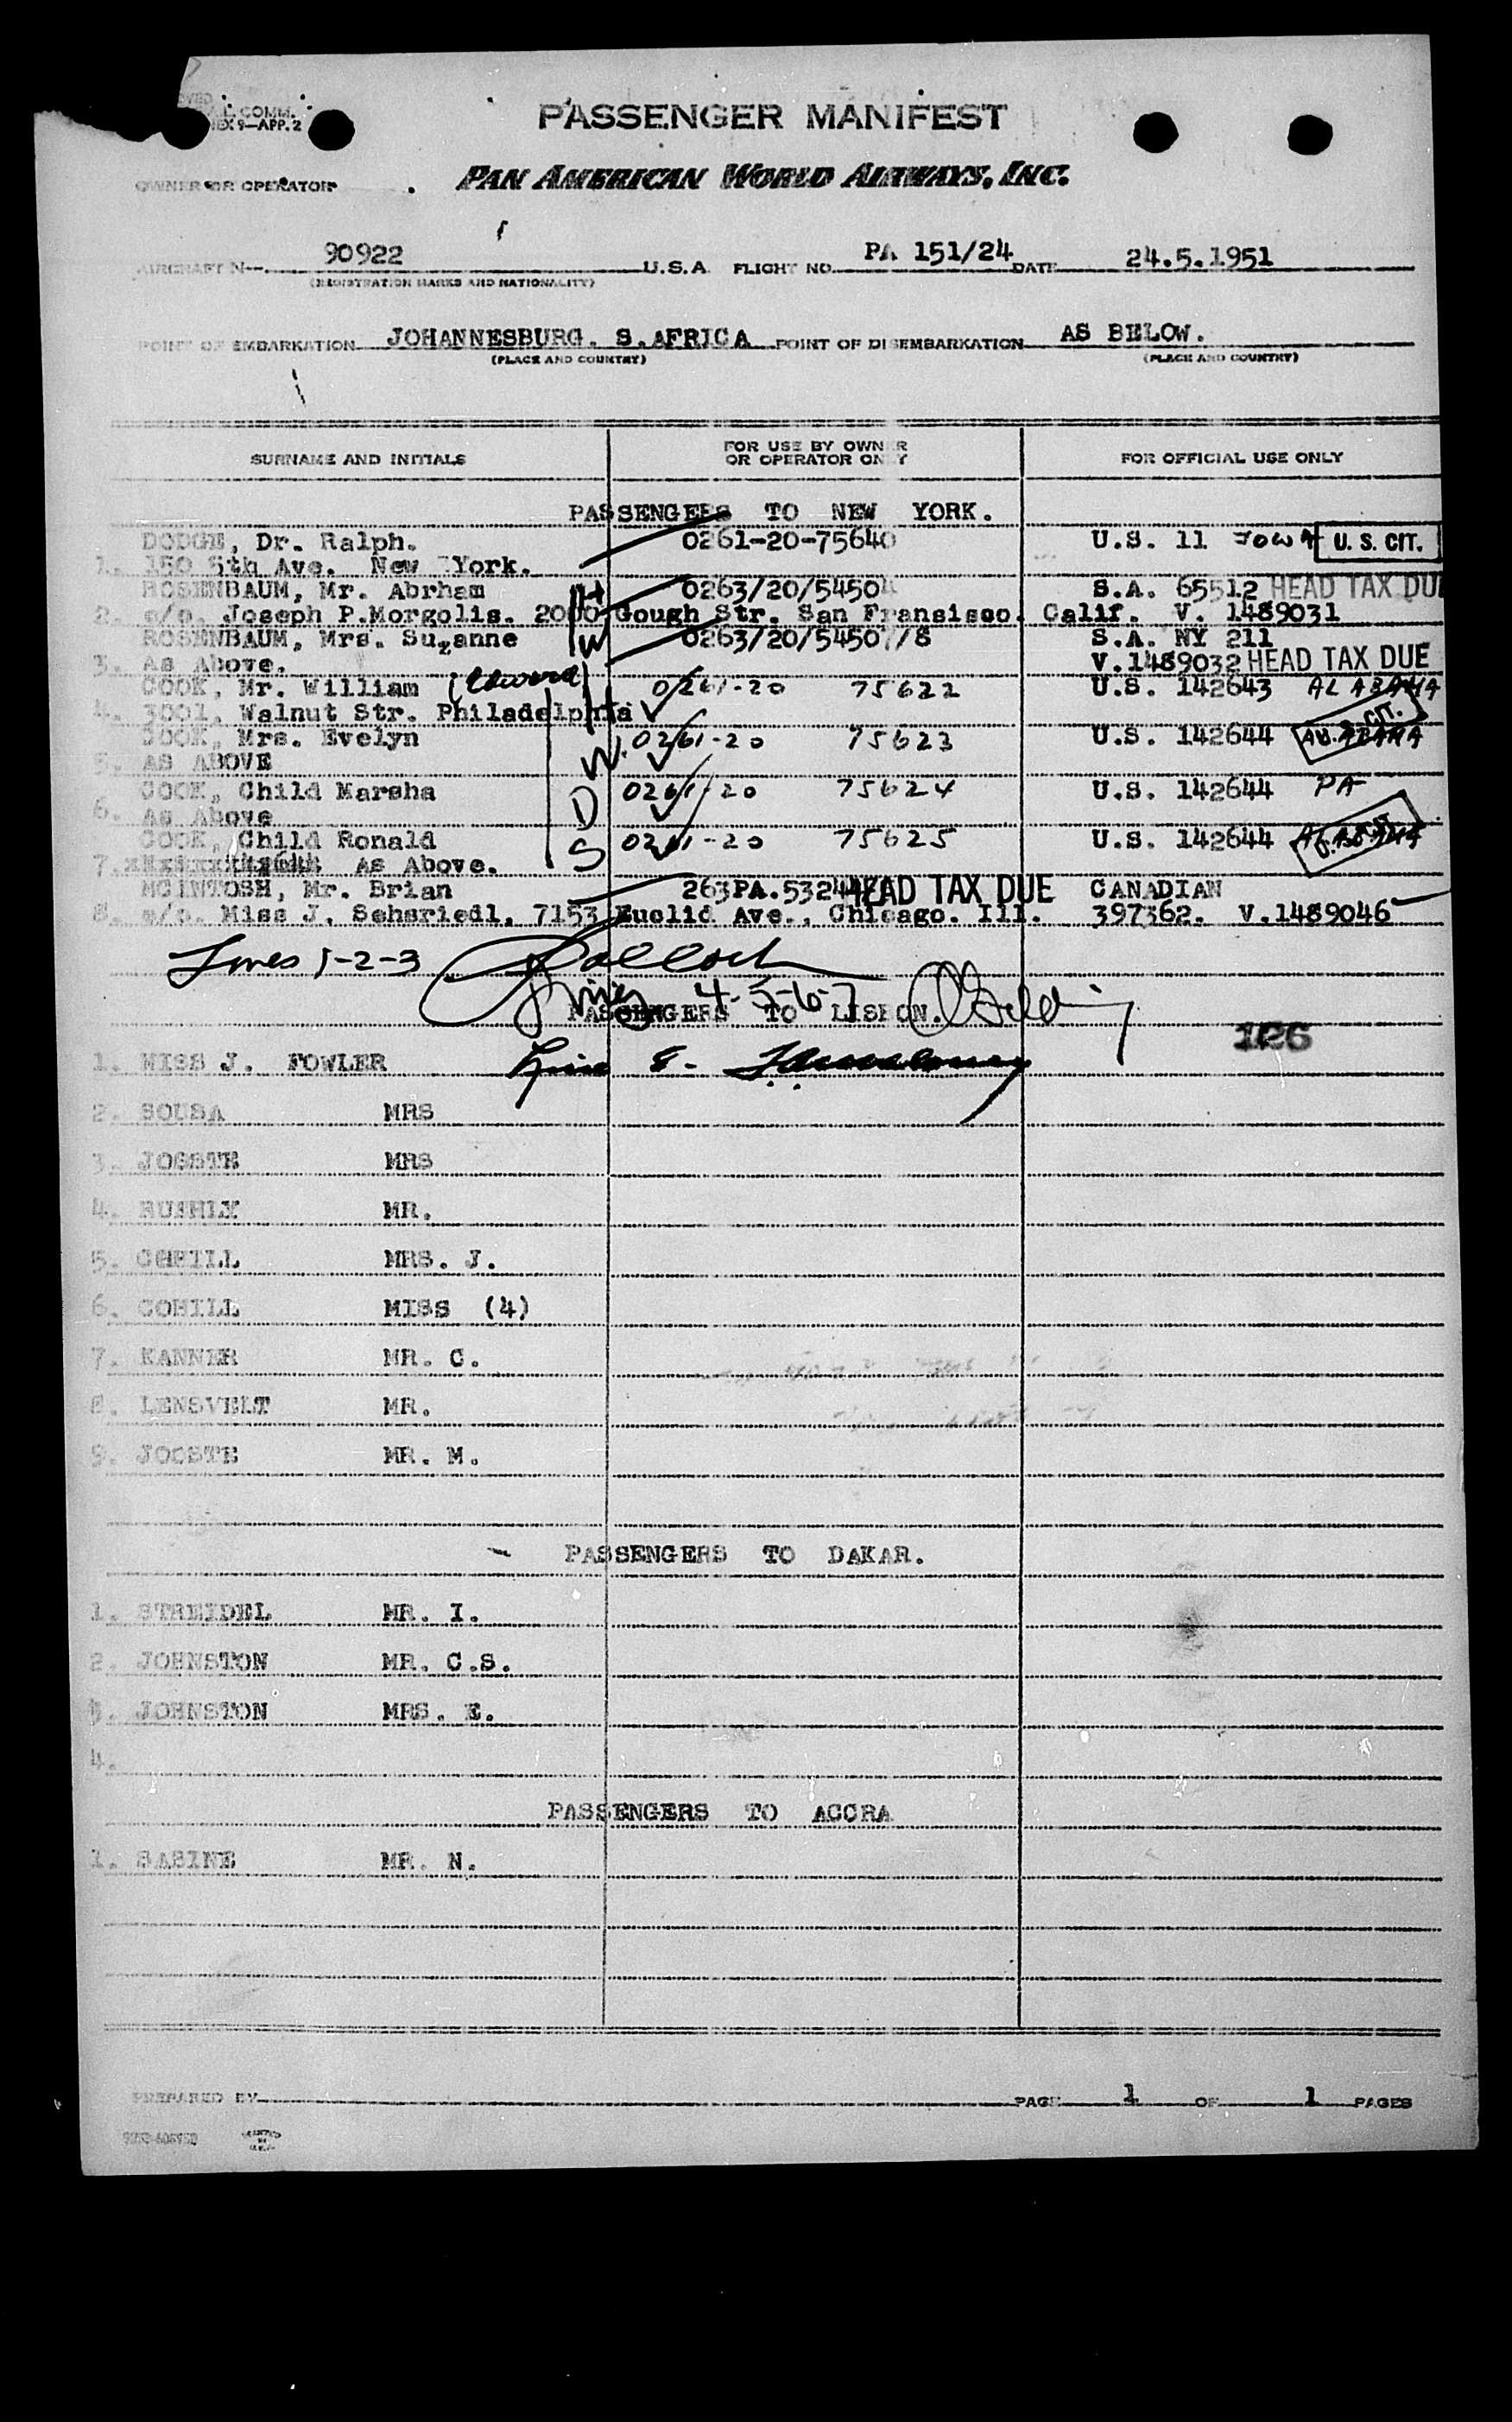 L. COMM.
EX 9—APP. 2
PASSENGER MANIFEST
OWNER OR OPERATOR PAN AMERICAN WORLD AIRWAYS, INC.
AIRCRAFT N— 90922 U.S.A. FLIGHT NO. PA 151/24 DATE 24.5.1951
(REGISTRATION MARKS AND NATIONALITY)
POINT OF EMBARKATION JOHANNESBURG. S.AFRICA POINT OF DISEMBARKATION AS BELOW.
(PLACE AND COUNTRY) (PLACE AND COUNTRY)
SURNAME AND INITIALS FOR USE BY OWNER OR OPERATOR ONLY FOR OFFICIAL USE ONLY
PASSENGERS TO NEW YORK.
DODGE, Dr. Ralph. 0261-20-75640 U.S. 11 IOWA U. S. CIT.
1. 150 5th Ave. New York.
ROSENBAUM, Mr. Abrham H 0263/20/54504 S.A. 65512 HEAD TAX DUE
2. c/o. Joseph P.Morgolis. 2000 Gough Str. San Fransisco. Calif. V. 1489031
ROSENBAUM, Mrs. Suzanne W 0263/20/54507/8 S.A. NY 211
3. As Above. V.1489032 HEAD TAX DUE
COOK, Mr. William (Edward) 0261-20 75622 U.S. 142643 ALABAMA
4. 3001, Walnut Str. Philadelphia H
COOK, Mrs. Evelyn W. 0261-20 75623 U.S. 142644 ALABAMA U. S. CIT.
5. AS ABOVE
COOK, Child Marsha D 0261-20 75624 U.S. 142644 PA
6. As Above
COOK, Child Ronald S 0261-20 75625 U.S. 142644 ALABAMA U. S. CIT.
7. As Above.
MCINTOSH, Mr. Brian 263PA.5324 HEAD TAX DUE CANADIAN
8. c/o. Miss J. Sehsriedl, 7153 Euclid Ave., Chicago. Ill. 397362. V.1489046
Lines 1-2-3
Lines 4-5-6-7
PASSENGERS TO LISBON.
126
1. MISS J. FOWLER Line 8-
2. SOUSA MRS
3. JOOSTE MRS
4. MR.
5. MRS. J.
6. COHILL MISS (4)
7. KANNER MR. C.
8. LENSVELT MR.
9. JOOSTE MR. M.
PASSENGERS TO DAKAR.
1. STREIDEL MR. I.
2. JOHNSTON MR. C.S.
3. JOHNSTON MRS. E.
4.
PASSENGERS TO ACCRA
1. SASINE MR. N.
PREPARED BY PAGE 1 OF 1 PAGES
PRINTED IN U.S.A.